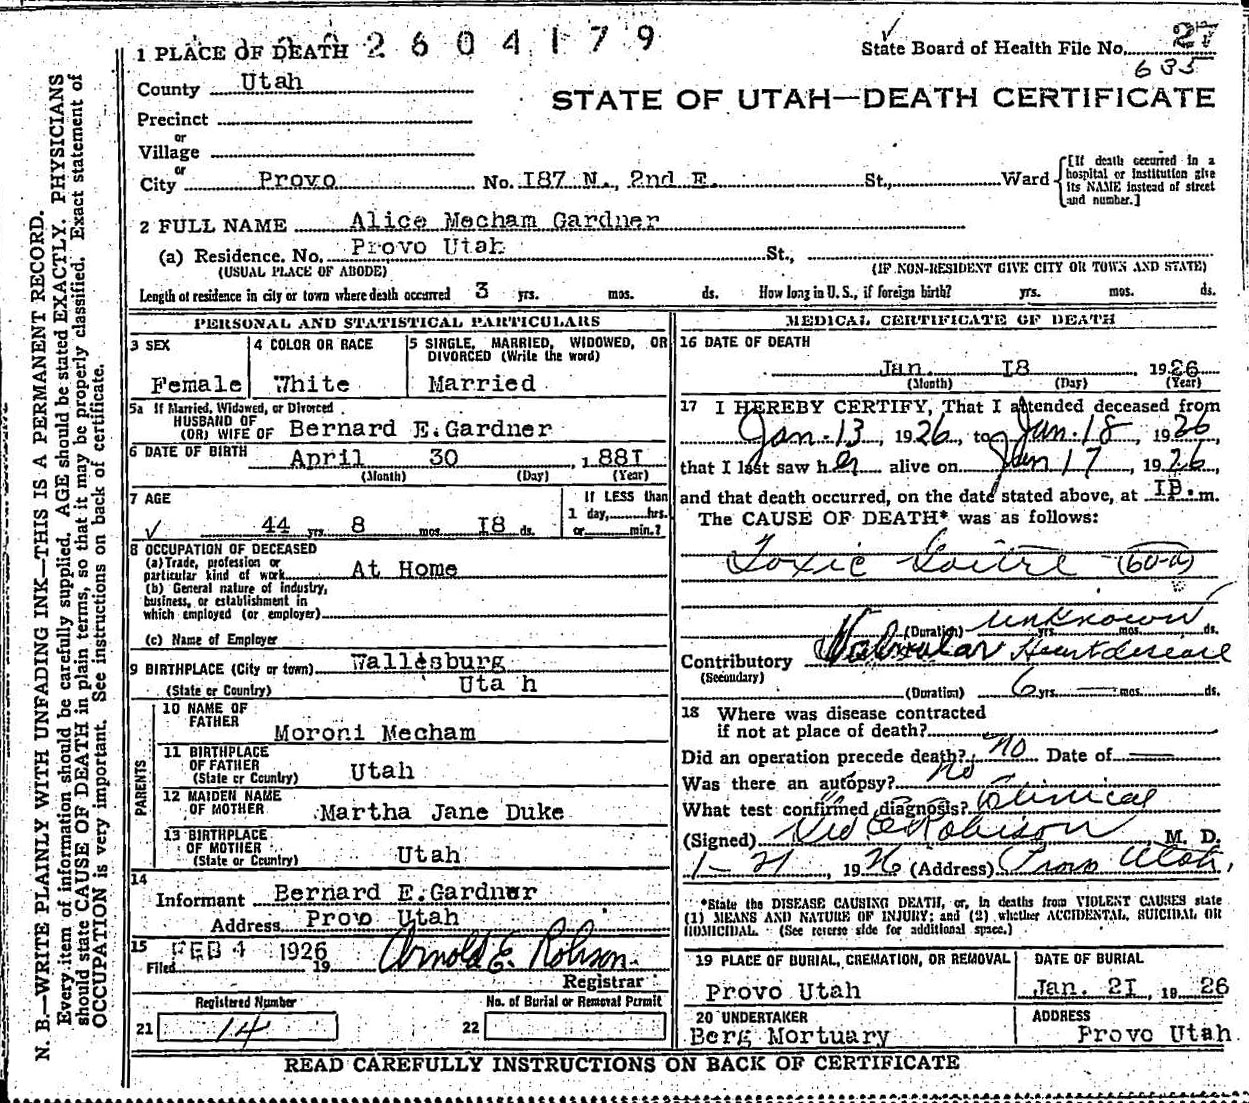 1 PLACE OF DEATH 2604179
State Board of Health File No. 27
635
County Utah
STATE OF UTAH—DEATH CERTIFICATE
Precinct
or
Village
or
City Provo No. I87 N., 2nd E. St., Ward
[If death occurred in a hospital or institution give its NAME instead of street and number.]
2 FULL NAME Alice Mecham Gardner
(a) Residence. No. Provo Utah St.,
(USUAL PLACE OF ABODE) (IF NON-RESIDENT GIVE CITY OR TOWN AND STATE)
Length of residence in city or town where death occurred 3 yrs. mos. ds. How long in U. S., if foreign birth? yrs. mos. ds.
PERSONAL AND STATISTICAL PARTICULARS
3 SEX
Female
4 COLOR OR RACE
White
5 SINGLE, MARRIED, WIDOWED, OR
DIVORCED (Write the word)
Married
5a If Married, Widowed, or Divorced
HUSBAND OF
(OR) WIFE OF Bernard E.Gardner
6 DATE OF BIRTH April 30, 188I
(Month) (Day) (Year)
7 AGE
44 yrs. 8 mos. I8 ds.
If LESS than
1 day,......hrs.
or......min.?
8 OCCUPATION OF DECEASED
(a) Trade, profession or
particular kind of work At Home
(b) General nature of industry,
business, or establishment in
which employed (or employer)
(c) Name of Employer
9 BIRTHPLACE (City or town) Wallesburg
(State or Country) Uta h
PARENTS
10 NAME OF
FATHER
Moroni Mecham
11 BIRTHPLACE
OF FATHER
(State or Country) Utah
12 MAIDEN NAME
OF MOTHER Martha Jane Duke
13 BIRTHPLACE
OF MOTHER
(State or Country) Utah
14
Informant Bernard E.Gardner
Address Provo Utah
15 FEB 4 1926
Filed 19 Arnold E. Robison
Registrar
Registered Number
21 14
No. of Burial or Removal Permit
22
MEDICAL CERTIFICATE OF DEATH
16 DATE OF DEATH
Jan. I8 1926
(Month) (Day) (Year)
17 I HEREBY CERTIFY, That I attended deceased from
Jan. 13, 1926, to Jan. 18, 1926,
that I last saw her alive on Jan 17, 1926,
and that death occurred, on the date stated above, at IP. m.
The CAUSE OF DEATH* was as follows:
Toxic Goitre - (60-a)
(Duration) unknown yrs. mos. ds.
Contributory Valvular Heart disease
(Secondary)
(Duration) 6 yrs. — mos. ds.
18 Where was disease contracted
if not at place of death?
Did an operation precede death? no Date of —
Was there an autopsy? no
What test confirmed diagnosis? Clinical
(Signed) Robison M. D.
1-21, 1926 (Address) Provo Utah,
*State the DISEASE CAUSING DEATH, or, in deaths from VIOLENT CAUSES state
(1) MEANS AND NATURE OF INJURY; and (2) whether ACCIDENTAL, SUICIDAL OR
HOMICIDAL. (See reverse side for additional space.)
19 PLACE OF BURIAL, CREMATION, OR REMOVAL
Provo Utah
DATE OF BURIAL
Jan. 2I, 1926
20 UNDERTAKER
Berg Mortuary
ADDRESS
Provo Utah
READ CAREFULLY INSTRUCTIONS ON BACK OF CERTIFICATE
N. B.—WRITE PLAINLY WITH UNFADING INK—THIS IS A PERMANENT RECORD.
Every item of information should be carefully supplied. AGE should be stated EXACTLY. PHYSICIANS
should state CAUSE OF DEATH in plain terms, so that it may be properly classified. Exact statement of
OCCUPATION is very important. See instructions on back of certificate.